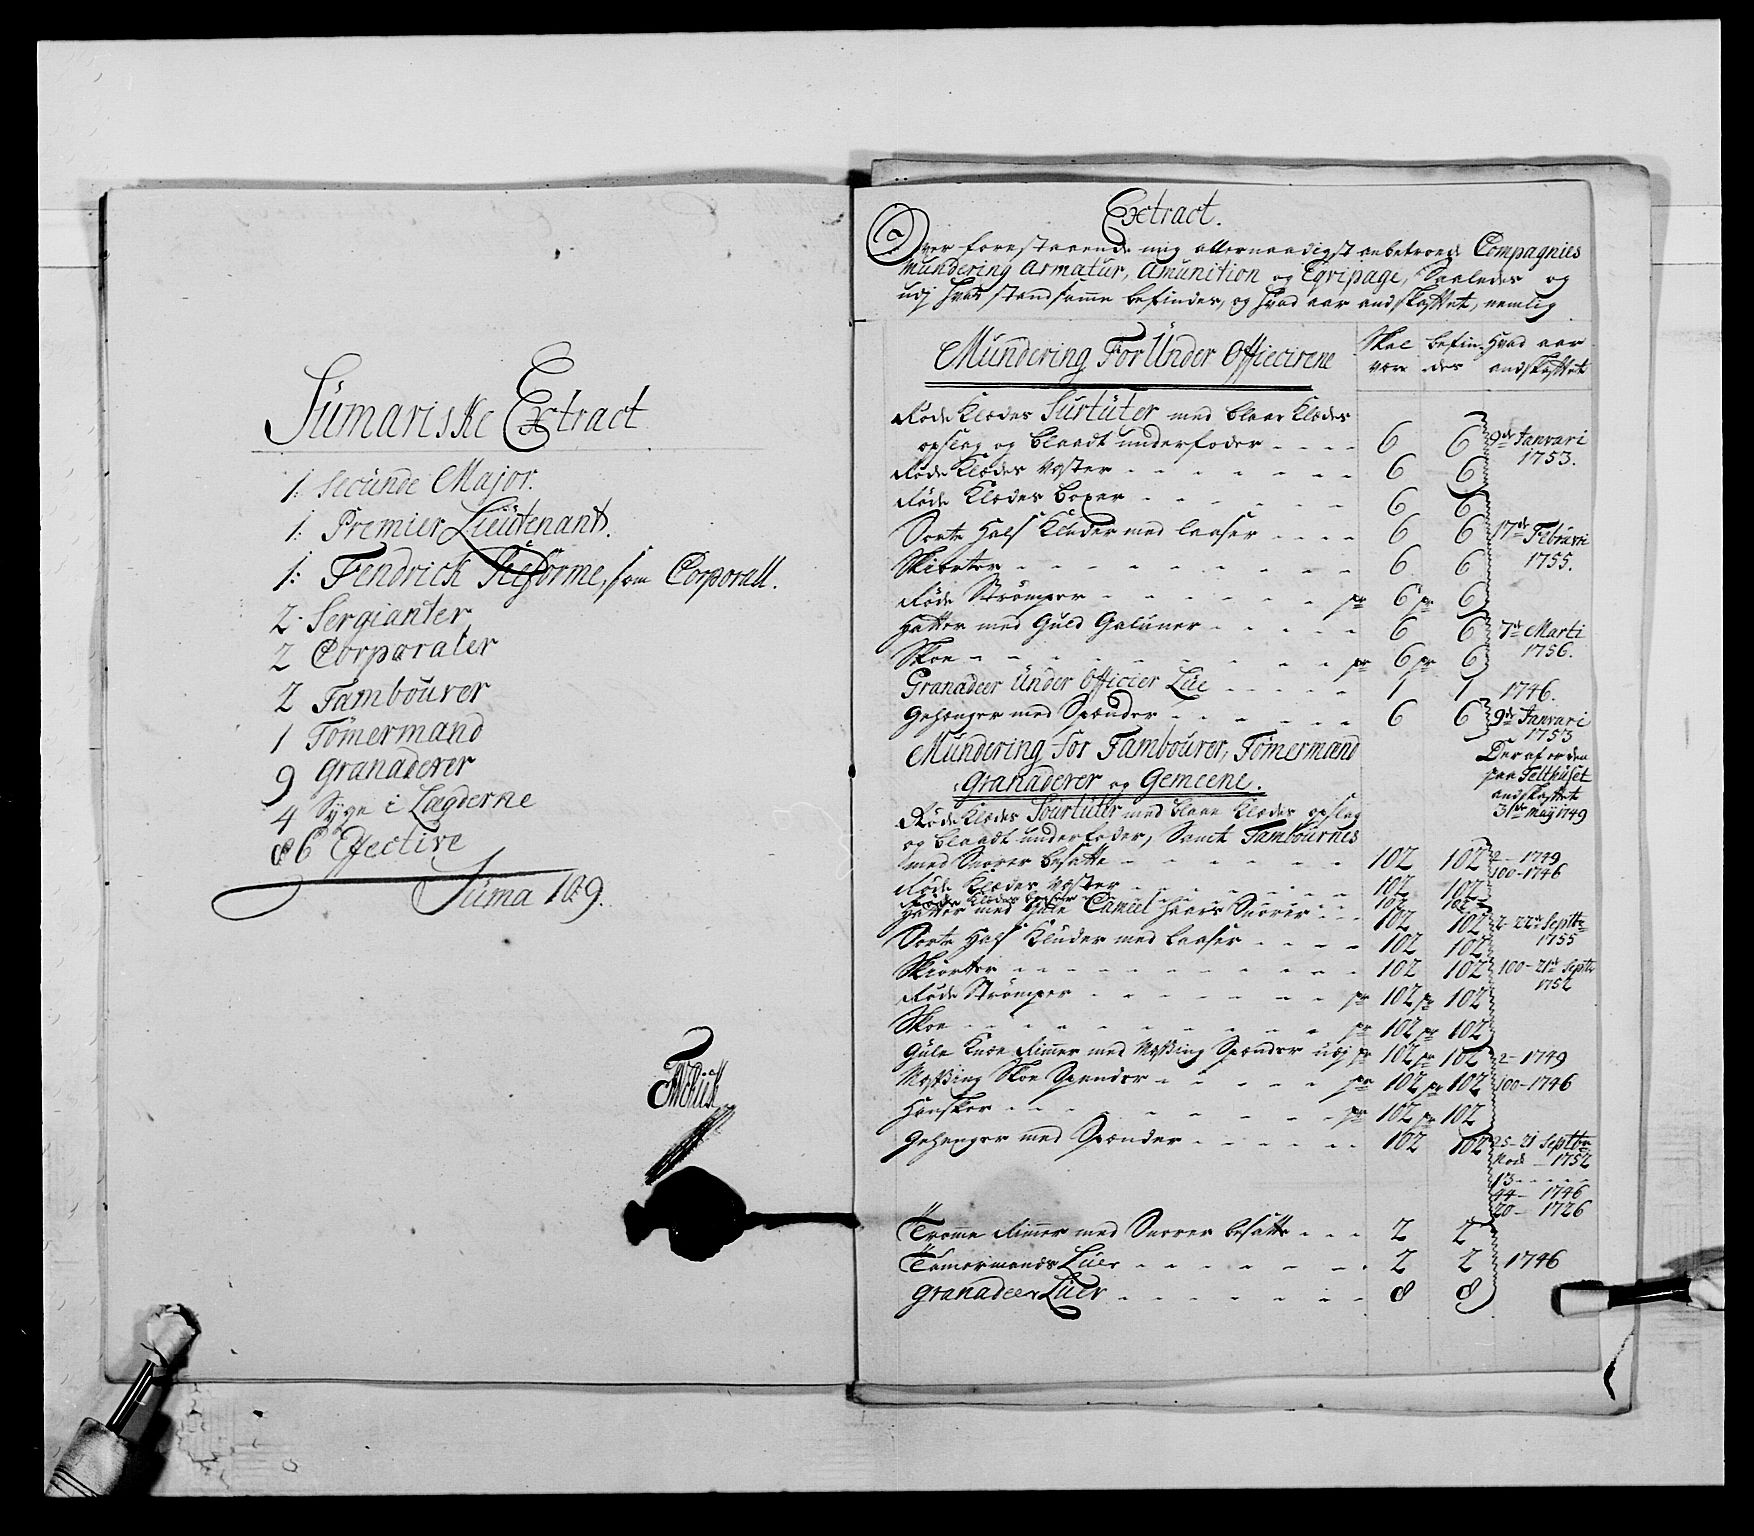 Sumariske Extract
1: Secunde Major.
1: Premier Lieutenant.
1: Fendrick Reforme, som Corporall.
2. Sergianter
2 Corporaler
2 Tambourer
1 Tömermand
9 Granaderer
4 Syge i Lægderne
86 Effective
Suma 109.
Extract.
Over forestaaende mig allernaadigst anbetroede Compagnies
Mundering Armatur, Amunition og Eqvipage, Saaledes og
udj hvad stand samme befindes, og hvad aar andskaffet, nemlig
Mundering For Under Officirene
Skal være
befindes
Hvad aar andskaffet
Røde Klædes Surtuter med blaae Klædes
opslag og blaadt underfoder - - - - 6 6 9de Januari
1753.
Røde Klædes Vester - - - - - - 6 6
Røde Klædes boxer - - - - - - 6 6
Sorte Hals Kluder med laaser - - - - 6 6 17de Februari
Skiorter - - - - - - - - - 6 6 1755.
Røde Strømper - - - - - - pr 6 pr 6
Hatter med Guld Galuner - - - - - 6 6 7de Marti
1756.
Skoe - - - - - - - - - pr 6 pr 6
Granadeer Under Officier Lue - - - - - 1 1 1746.
Gehenger med Spænder - - - - - - 6 6 9de Januari
1753
Mundering for Tambourer, Tømermand
Granaderer og Gemeene.
Der af er den
paa Felthuset
andskaffet
31de Maij 1749
Røde Klædes Sourtuter med blaae Klædes opslag
og blaadt underfoder, Samt Tambournes
med Snorer besatte - - - - - - 102 102 2 - 1749
100 - 1746
Røde Klædes Vester - - - - - - 102 102
Røde Klædes boxser - - - - - - 102 102
Hatter med Gule Cameel haars Snorer - - - 102 102 2 - 22de Septbr
1755
Sorte Hals Kluder med laaser - - - - 102 102
Skiorter - - - - - - - - - 102 102 100 - 21de Septbr
1752
Røde Strømper - - - - - - pr 102 pr 102
Skoe - - - - - - - - - pr 102 pr 102
Gule Knæe Rimer med Messing Spænder udj pr 102 pr 102 2 - 1749
Messing Skoe Spender - - - - - pr 102 pr 102 100 - 1746
Handsker - - - - - - - - pr 102 pr 102
Gehenger med Spænder - - - - - - 102 102 25 - 21 Septbr
1752
13 - - - -
44 - 1746
20 - 1726
Tromme Rimer med Snorer besatte - - - 2 2
Tømermands Luer - - - - - - 2 2 1746
Granadeer Luer - - - - - - 8 8